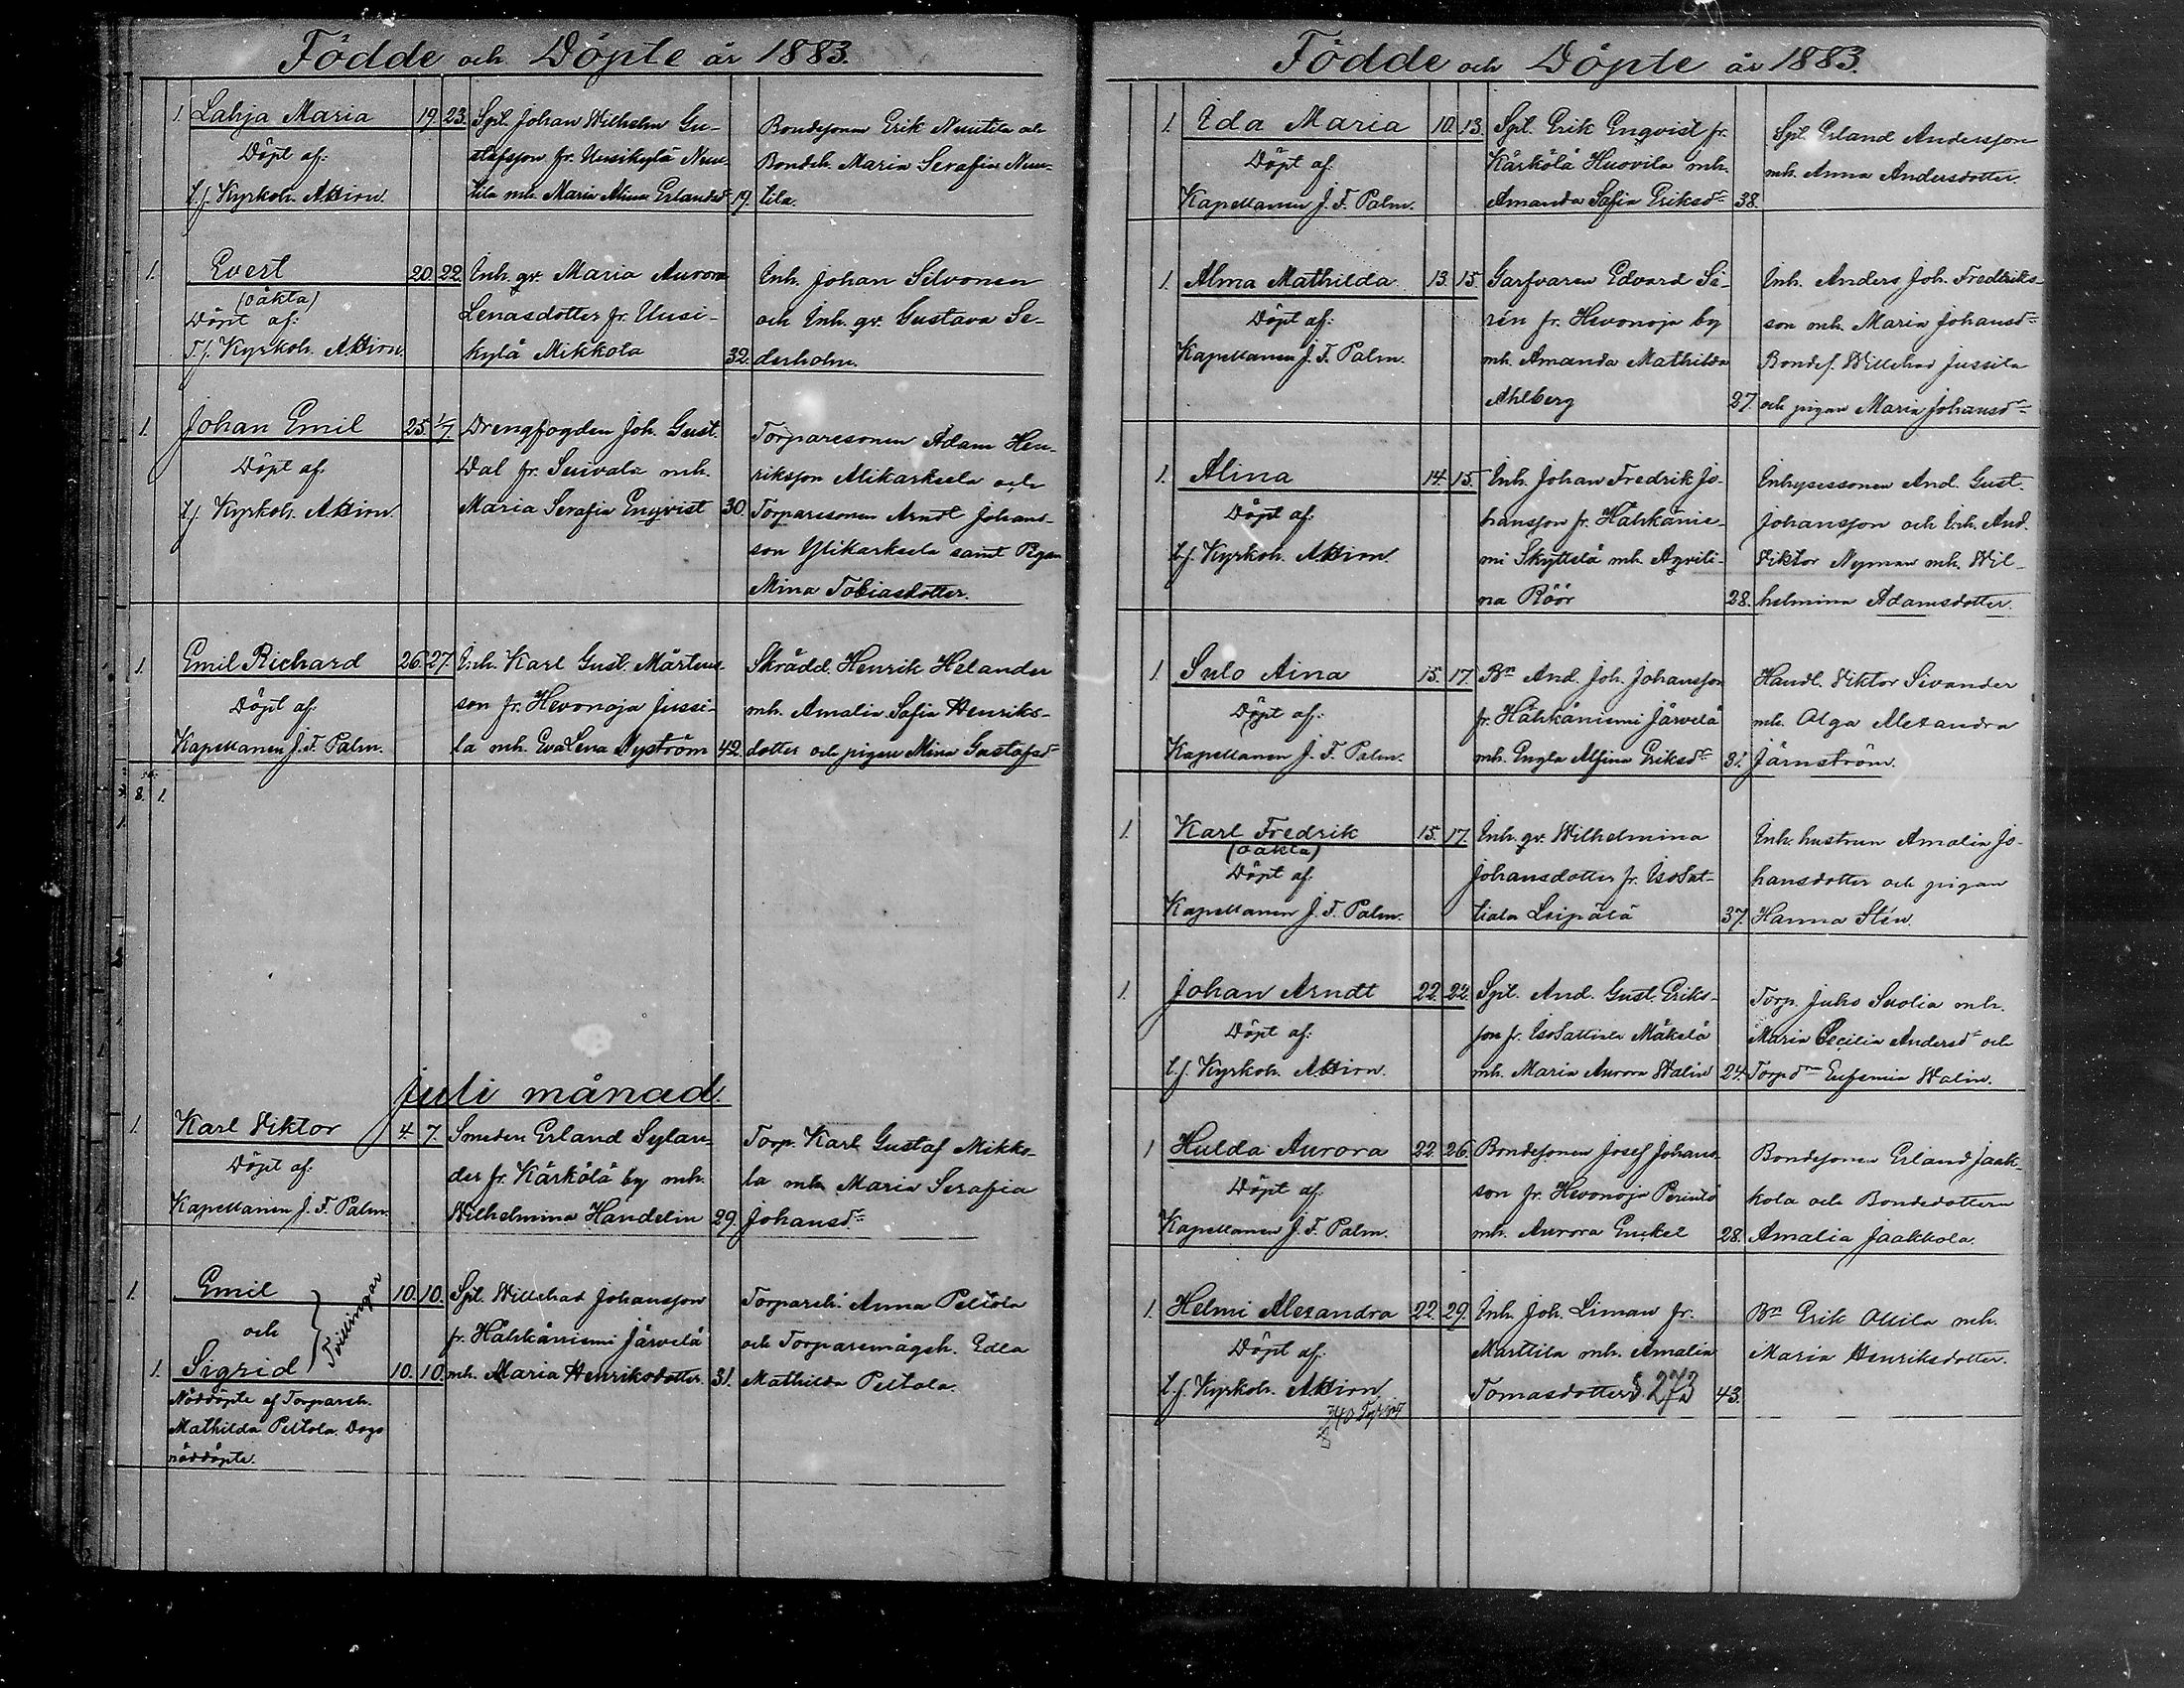 Födde och Döpte år 1883.
1. Lahja Maria 19. 23. Spl. Johan Wilhelm Gu- Bondesonen Erik Nuutila och
Döpt af: stafsson fr. Uusikylä Nuu- Bondeh. Maria Serafia Nuu-
t.f. Kyrkoh. Aktion. tila mh. Maria Alina Erlandsdr 19. tila.
1. Evert 20. 22. Inh. qv. Maria Aurora Inh. Johan Silvonen
(oäkta)
Döpt af: Lenasdotter fr. Uusi- och Inh. qv. Gustava Se-
T.f. Kyrkoh. Aktion. kylä Mikkola 32. derholm.
1. Johan Emil 25. 1/7. Drengfogden Joh. Gust. Torparesonen Adam Hen-
Döpt af. Dal fr. Suivala mh. riksson Alikarkeela och
t.f. Kyrkoh. Aktion. Maria Serafia Enqvist 30. Torparesonen Arndt Johans-
son Ylikarkeela samt Pigan
Mina Tobiasdotter.
1. Emil Richard 26. 27. Inh. Karl Gust. Mårtens- Skrädd. Henrik Helander
Döpt af. son fr. Hevonoja Jussi- mh. Amalia Sofia Henriks-
Kapellanen J. F. Palm. la mh. Eva Lena Nyström 42. dotter och pigan Mina Gustafsdr
8. 1.
Juli månad.
1. Karl Viktor 4. 7. Smeden Erland Sylan- Torp. Karl Gustaf Mikko-
Döpt af: der fr. Kärkölä by mh. la mh Maria Serafia
Kapellanen J. F. Palm. Wilhelmina Handelin 29. Johansdr
1. Emil 10. 10. Spl. Willehad Johansson Torpareh. Anna Peltola
och Tvillingar fr. Hähkäniemi Järvelä och Torparemågsh. Edla
1. Sigrid 10. 10. mh. Maria Henriksdotter. 31. Mathilda Peltola.
Nöddöpte af Torpareh.
Mathilda Peltola. Dogo
nöddöpte.
Födde och Döpte år 1883.
1. Ida Maria 10. 13. Spl. Erik Enqvist fr. Spl. Erland Andersson
Döpt af: Kärkölä Huovila mh. mh. Anna Andersdotter.
Kapellanen J. F. Palm. Amanda Sofia Eriksdr 38.
1. Alma Mathilda 13. 15. Garfvaren Edvard Si- Inh. Anders Joh. Fredriks-
Döpt af: rén fr. Hevonoja by son mh. Maria Johansdr
Kapellanen J. F. Palm. mh. Amanda Mathilda Bondes. Willehad Jussila
Ahlberg 27. och pigan Maria Johansdr
1. Alina 14. 15. Inh. Johan Fredrik Jo- Inhysessonen And. Gust.
Döpt af: hansson fr. Hähkänie- Johansson och Inh. And.
t.f. Kyrkoh. Aktion. mi Skyttelä mh. Aqvili- Viktor Nyman mh. Wil-
na Röör 28. helmina Adamsdotter.
1. Sulo Aina 15. 17. Bn And. Joh. Johansson Handl. Viktor Sivander
Döpt af: fr. Hähkäniemi Järvelä mh. Olga Alexandra
Kapellanen J. F. Palm. mh. Engla Alfina Eriksdr 31. Järnström.
1. Karl Fredrik 15. 17. Inh. qv. Wilhelmina Inh. hustrun Amalia Jo-
(oäkta)
Döpt af: Johansdotter fr. IsoSat- hansdotter och pigan
Kapellanen J. F. Palm. tiala Leipälä 37. Hanna Stén.
1. Johan Arndt 22. 22. Spl. And. Gust. Eriks- Torp. Juho Suolia mh.
Döpt af: son fr. IsoSattiala Mäkelä Maria Cecilia Andersdr och
t.f. Kyrkoh. Aktion. mh. Maria Aurora Walin 24. Torpdrn Eufemia Walin.
1 Hulda Aurora 22. 26. Bondesonen Josef Johans- Bondesonen Erland Jaak-
Döpt af: son fr. Hevonoja Perintö kola och Bondedottern
Kapellanen J. F. Palm. mh. Aurora Enckel 28. Amalia Jaakkola.
1. Helmi Alexandra 22. 29. Inh. Joh. Liman fr. Bn Erik Ollila mh.
Döpt af: Marttila mh. Amalia Maria Henriksdotter.
t.f. Kyrkoh. Aktion. Tomasdotter § 273 43.